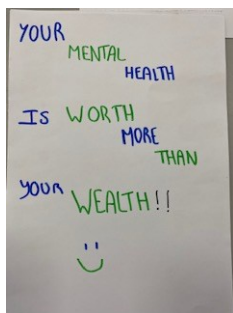 YOUR
MENTAL
HEALTH
IS WORTH
MORE
THAN
YOUR WEALTH!!